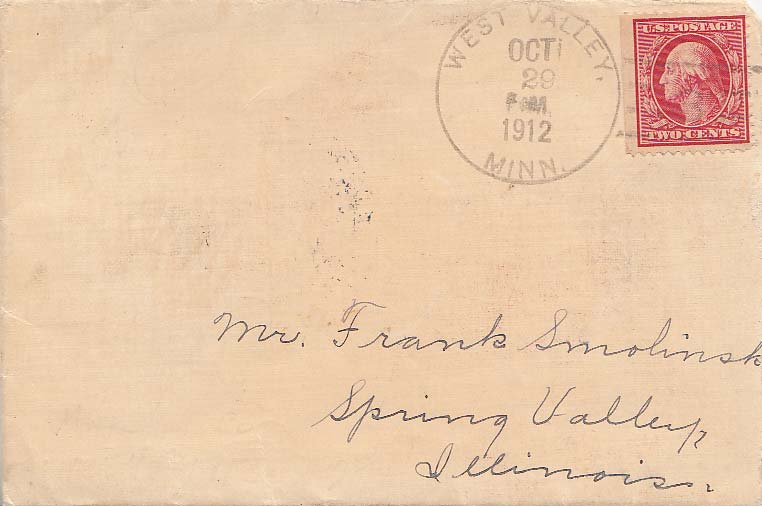 WEST VALLEY,
OCT
29
P M.
1912
MINN.
U.S. POSTAGE
TWO CENTS
Mr. Frank Smolinsk
Spring Valley,
Illinois.